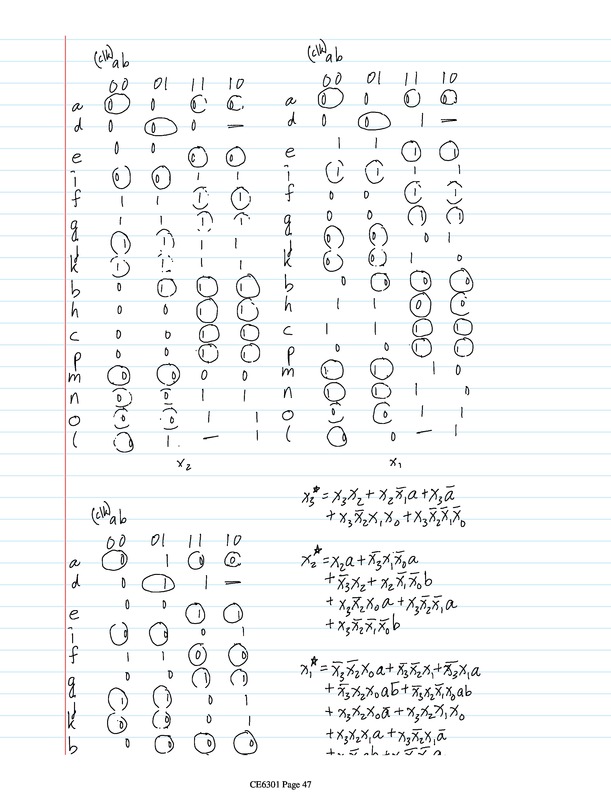 (clk) ab
00 01 11 10
a 0 0 0 0
d 0 0 0 —
e 0 0 0 0
i 0 0 1 1
f 1 1 1 1
g 1 1 1 1
d 1 1 1 1
k 1 1 1 1
b 0 1 1 1
h 0 0 1 1
c 0 0 1 1
p 0 0 1 1
m 0 0 0 0
n 0 0 1 1
o 0 0 1 1
l 0 1 — 1
x₂
(clk) ab
00 01 11 10
0 0 0 0
0 0 1 —
1 1 1 1
1 1 1 1
0 0 1 1
0 0 1 1
0 0 0 1
0 0 1 0
0 0 0 0
1 1 0 0
1 1 1 1
0 0 1 1
1 1 1 0
1 1 1 0
0 0 1 1
0 0 — 1
x₁
(clk) ab
00 01 11 10
a 0 1 0 0
d 0 1 1 —
e 0 0 1 1
i 0 0 0 1
f 1 1 0 0
g 0 0 1 1
d 1 1 0 1
k 0 0 0 1
b 0 0 0 0
x₃* = x₃x₂ + x₂x̄₁a + x₃ā
+ x₃x̄₂x₁x₀ + x₃x̄₂x̄₁x̄₀
x₂* = x₂a + x̄₃x₁x̄₀a
+ x̄₃x₂ + x₂x̄₁x̄₀b
+ x₃x̄₂x₀a + x₃x̄₂x̄₁a
+ x₃x̄₂x̄₁x̄₀b
x₁* = x̄₃x̄₂x₀a + x̄₃x̄₂x₁ + x̄₃x₁a
+ x̄₃x₂x₀ab̄ + x̄₃x₂x̄₁x₀ab
+ x₃x₂x₀ā + x₃x₂x₁x₀
+ x₃x₂x₁a + x₃x̄₂x₁ā
CE6301 Page 47